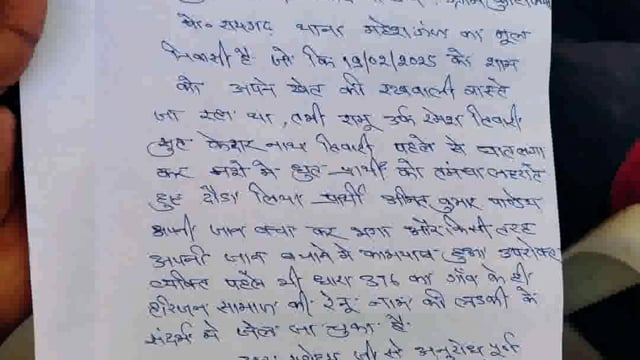 पो० रायगढ़ थाना महेशगंज का मूल
निवासी है जो कि 19/02/2025 को शाम
को अपने खेत की रखवाली वास्ते
जा रहा था, तभी रामू उर्फ रमेश तिवारी
सुत केदार नाथ तिवारी पहले से घात लगा
कर नशे मे धुत प्रार्थी को तमंचा लहराते
हुए दौडा लिया प्रार्थी कुमार पाण्डेय
अपनी जान बचा कर भागा और किसी तरह
अपनी जान बचाने मे कामयाब हुआ उपरोक्त
व्यक्ति पहले भी धारा 376 का गाँव के ही
हरिजन समाज की रेनू नाम की लडकी के
संदर्भ मे जेल जा चुका है.
जी से अनुरोध पूर्ण